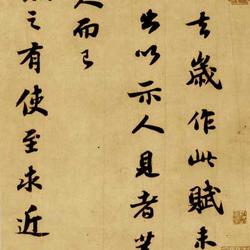 去歲作此賦未
出以示人見者蓋
人而已
之有使至求近